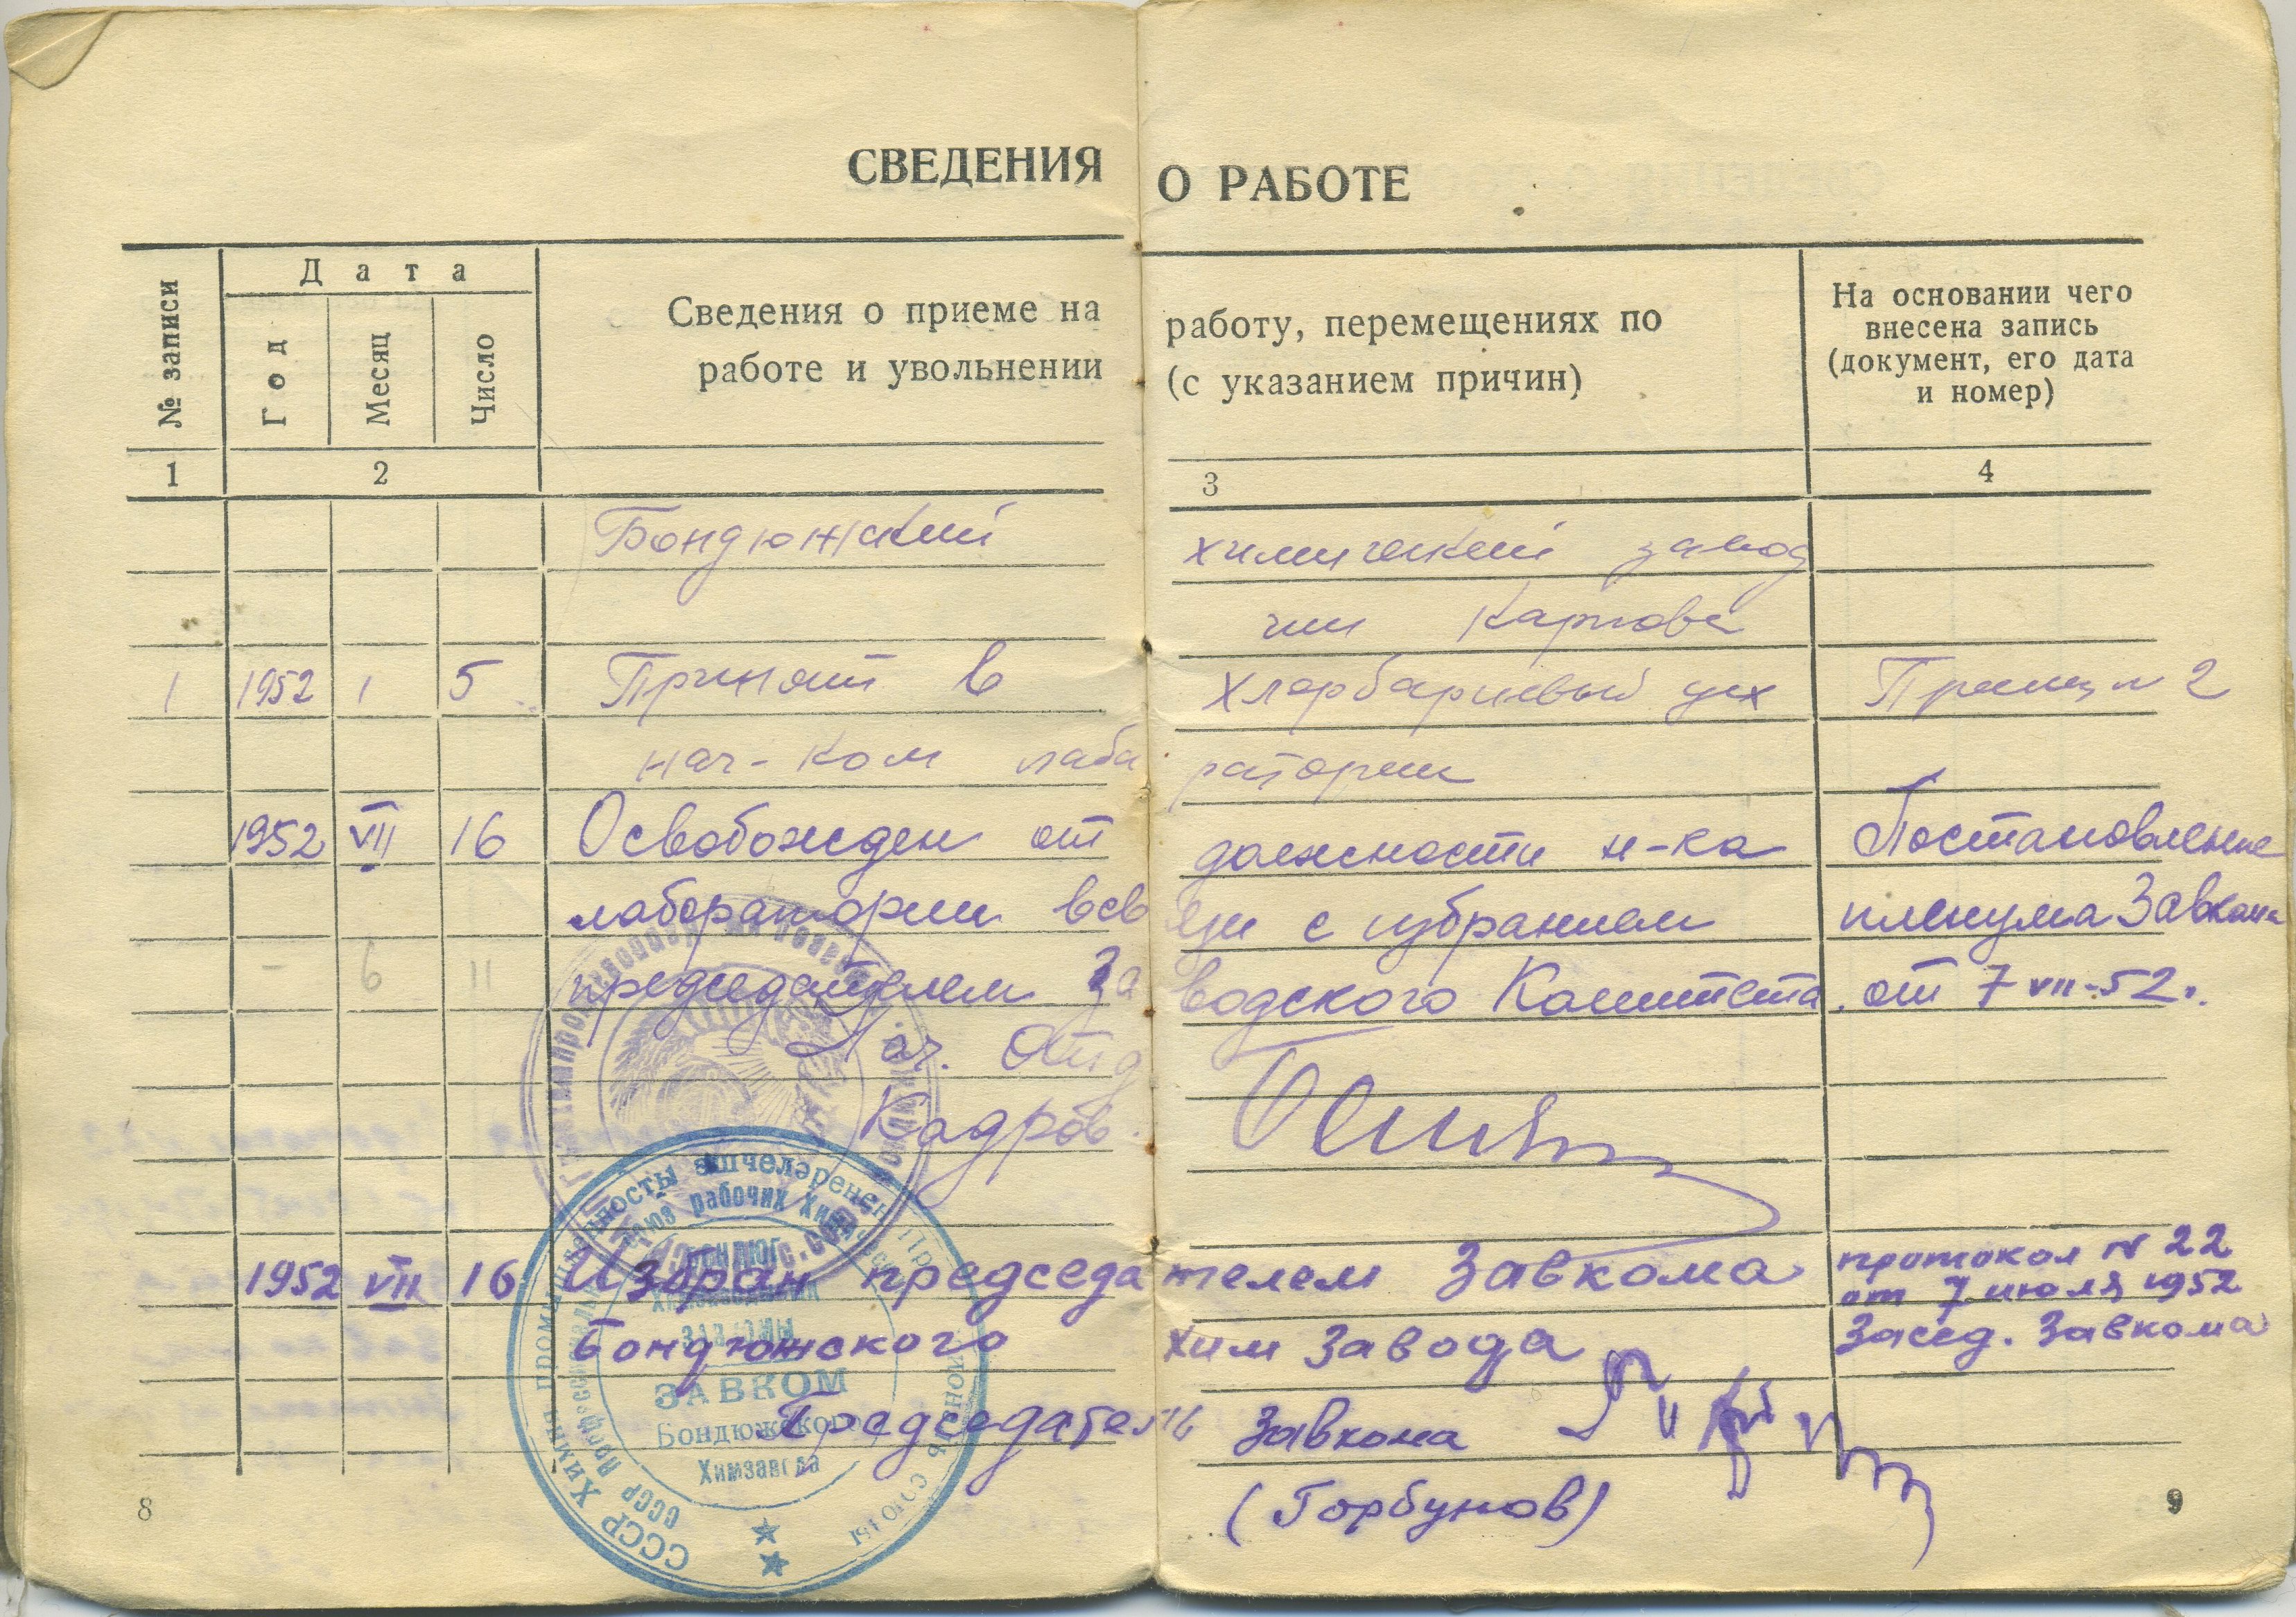 СВЕДЕНИЯ О РАБОТЕ
№ записи
Дата
Год
Месяц
Число
Сведения о приеме на работу, перемещениях по
работе и увольнении (с указанием причин)
На основании чего
внесена запись
(документ, его дата
и номер)
1 2 3 4
Бондюжский химический завод
им Карпова
1 1952 1 5 Принят в Хлорбариевый цех
нач-ком лаборатории
1952 VII 16 Освобожден от должности н-ка Постановление
лаборатории всвязи с избранием пленума Завкома
- 6 11 председателем Заводского Комитета. от 7 VII-52г.
Нач. Отд
Кадров.
1952 VII 16 Избран председателем Завкома протокол N 22
от 7 июля 1952
Бондюжского хим завода Засед. Завкома
Председатель Завкома
(Горбунов)
СССР Химия промышленносты эшчеләренең
рабочих
ЗАВКОМ
Бондюжского
Химзавода
8 9